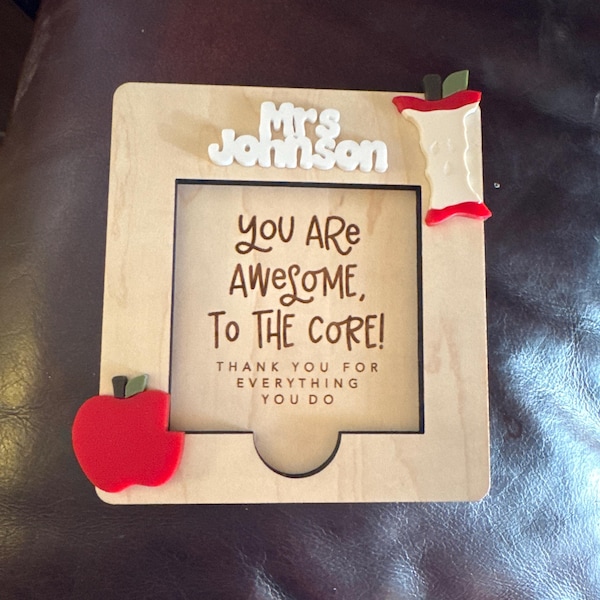 Mrs
Johnson
YOU ARe
AWeSOME,
TO THE CORE!
THANK YOU FOR
EVERYTHING
YOU DO